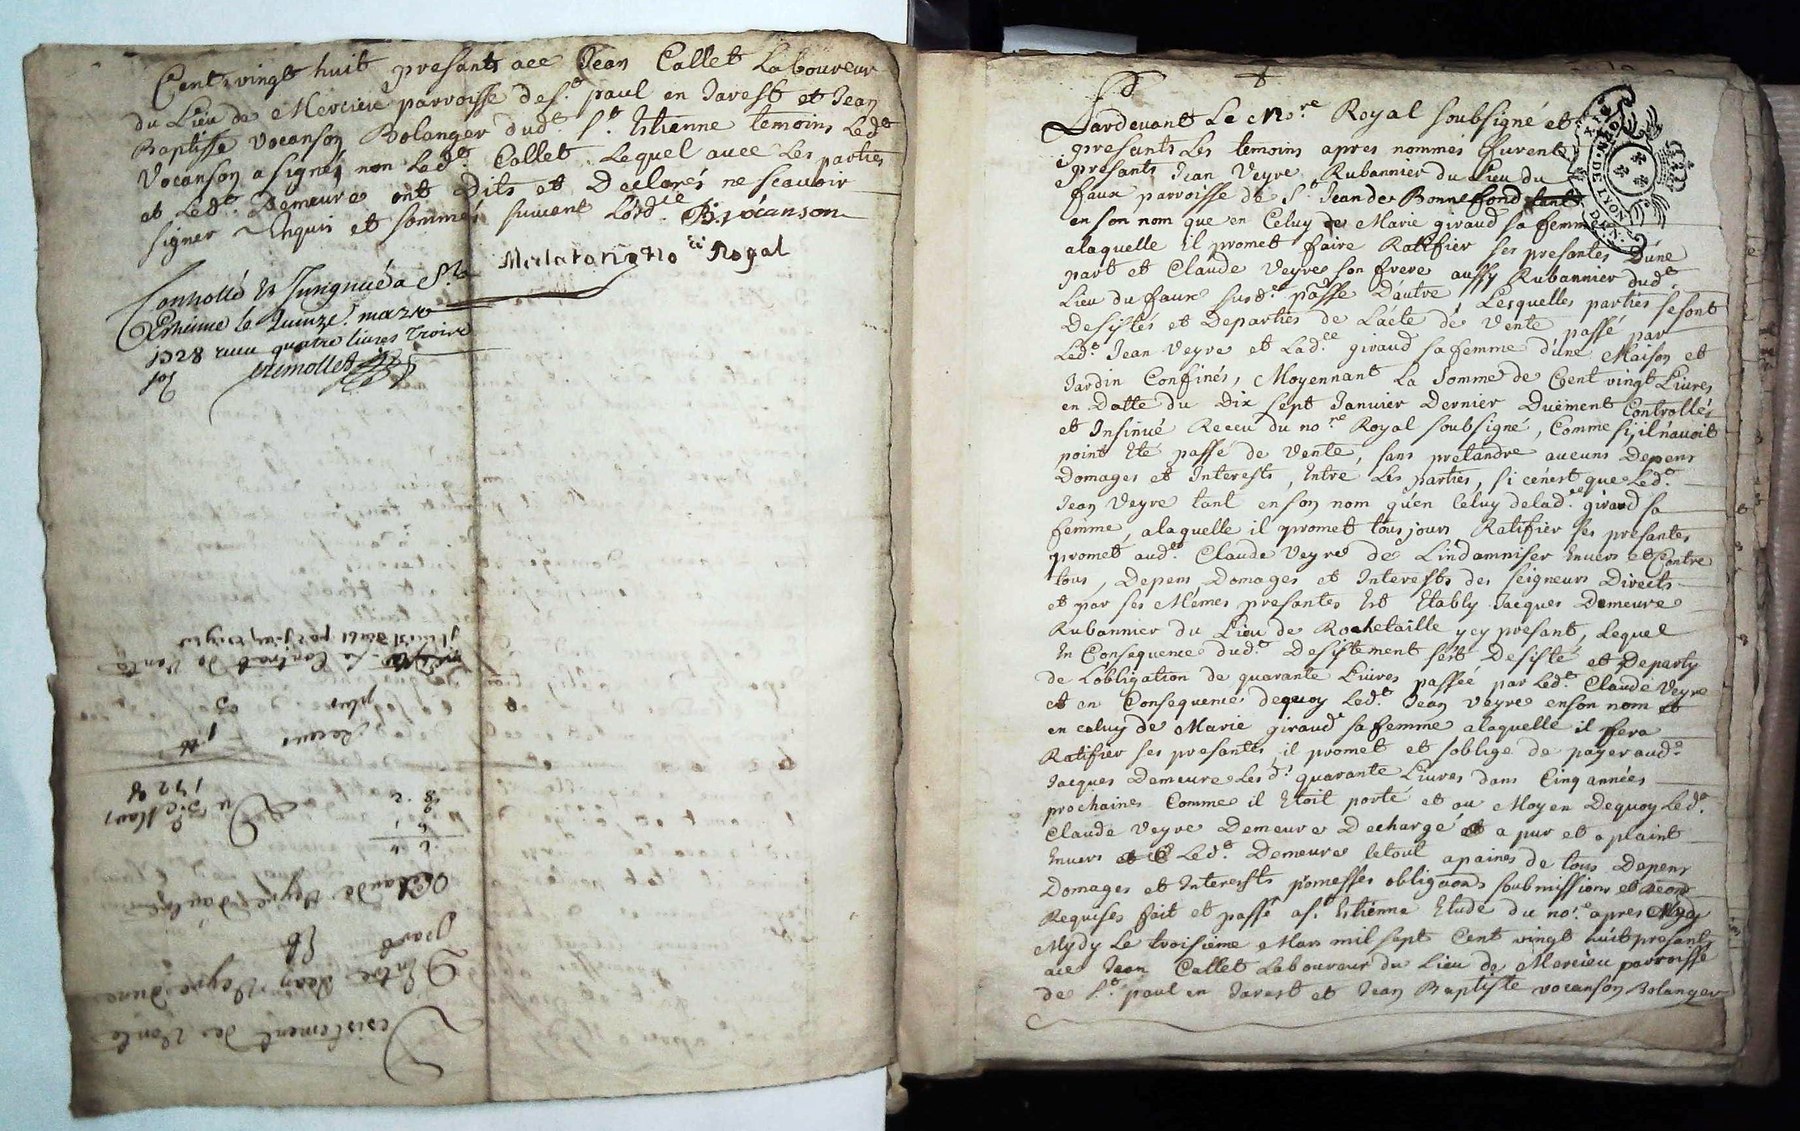 Cent vingt huit presants avec Jean Callet Laboureur
du Lieu de Mercieu parroisse de St. paul en Jarest et Jean
Baptiste Vocanson Bolanger dudt. St. Estienne temoins Ledt.
Vocanson a signé, non Ledt. Callet, Lequel avec Les parties
et Ledt. Demeure ont Dits et Declarés ne scavoir
signer Enquis et sommés suivant L'ordce B. vocanson
no re Royal
Controllé et
Estienne le quinze mars
1728 receu quatre livres treize
Desistement de Vente
Entre Jean Veyre d'une
part
Et
Claude Veyre D'autre
Du 3e Mars
1728
Receus
plus
Le Contrat de Vente
Pardevant Le nore Royal soubsigné et
presants Les temoins apres nommés furent
presants Jean Veyre Rubannier du Lieu du
faux parroisse de St. Jean de Bonnefond tant
en son nom que en Celuy de Marie giraud sa femme
alaquelle il promet faire Ratifier ses presantes D'une
part et Claude Veyre son frere aussy Rubannier dudt.
Lieu du faux susdt. passe D'autre, Lesquelles parties se sont
Desistés et Departies de L'acte de Vente passé par
Ledt. Jean Veyre et Ladce giraud sa femme d'une Maison et
Jardin Confinés, Moyennant La Somme de Cent vingt Livres
en Datte du Dix sept Janvier Dernier Duëment Controllés
et Insinué Receu du nore Royal soubsigné, Comme sy il n'avoit
point Eté passé de Vente, sans pretandre aucuns Depens
Domages et Interests, Entre Les parties, si cen'est que Ledt.
Jean Veyre tant en son nom qu'en Celuy de ladce giraud sa
femme, alaquelle il promet tousjours Ratifier ses presantes
promet audt. Claude Veyre de L'indamniser Envers et Contre
tous, Depens Domages et Interests des seigneurs Directs
et par ses Mêmes presantes Est Etably Jacques Demeure
Rubannier du Lieu de Rochetaille ycy presant, Lequel
En Consequence dudt. Desistement s'est Desisté et Departy
de L'obligation de quarante Livres passée par Ledt. Claude Veyre
et en Consequence dequoy Ledt. Jean Veyre en son nom et
en celuy de Marie giraud sa femme alaquelle il fera
Ratifier ses presantes, il promet et s'oblige de payer audt.
Jacques Demeure Lesdt. quarante Livres dans Cinq années
prochaines Comme il Etoit porté et au Moyen Dequoy Ledt.
Claude Veyre Demeure Dechargé et a pur et a plaint
Envers Ledt. Demeure letout apaines de tous Depens
Domages et Interests promesses obligaons soubmissions et
Requises fait et passé a St. Estienne Etude du nore apres Mydy
Mydy Le troisieme Mars mil sept Cent vingt huit presants
avec Jean Callet Laboureur du Lieu de Mercieu parroisse
de St. paul en Jarest et Jean Baptiste vocanson Bolanger